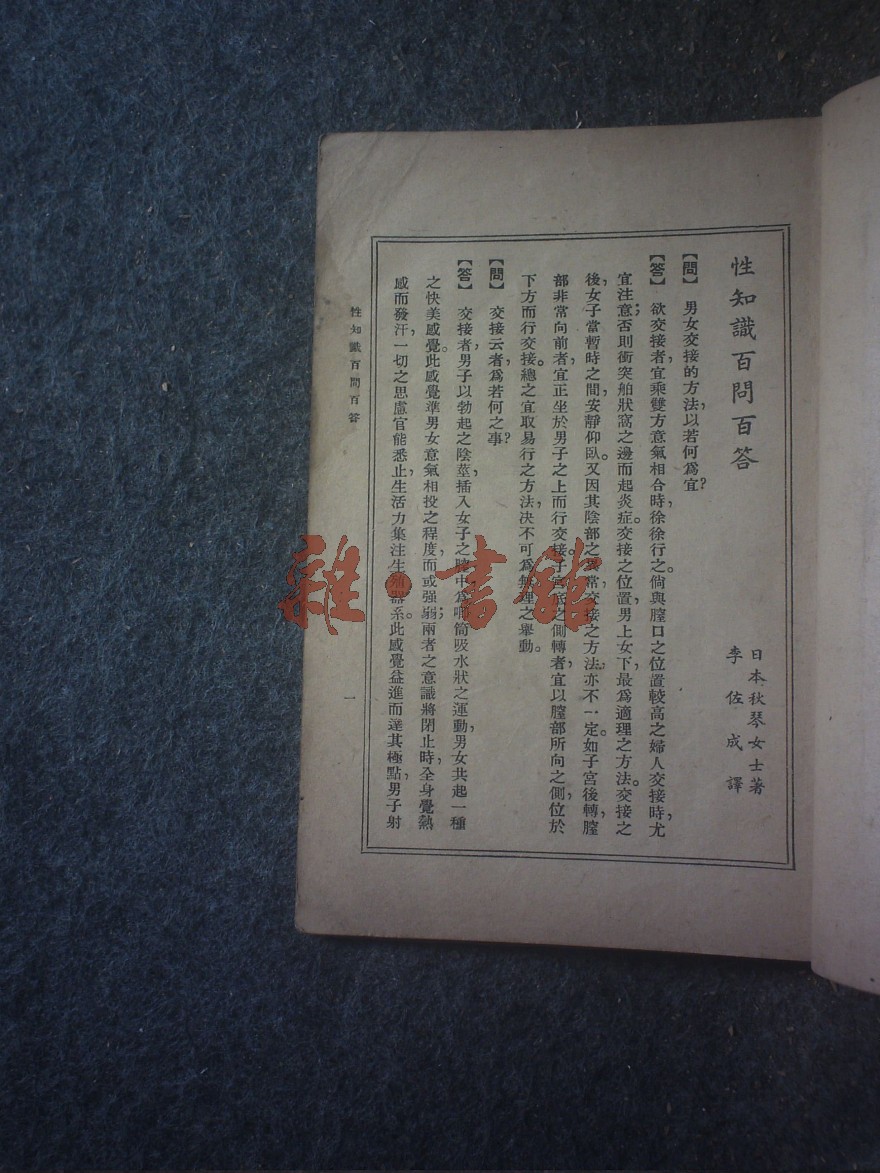 性知識百問百答
日本秋琴女士著
李佐成譯
【問】 男女交接的方法，以若何爲宜？
【答】 欲交接者，宜乘雙方意氣相合時，徐徐行之。倘與膣口之位置較高之婦人交接時，尤
宜注意；否則衝突舶狀窩之邊而起炎症。交接之位置，男上女下，最爲適理之方法。交接之
後，女子當暫時之間，安靜仰臥。又因其陰部之異常，交接之方法，亦不一定。如子宮後轉，膣
部非常向前者，宜正坐於男子之上而行交接。子宮底之側轉者，宜以膣部所向之側，位於
下方而行交接。總之宜取易行之方法，决不可爲無理之舉動。
【問】 交接云者，爲若何之事？
【答】 交接者，男子以勃起之陰莖，插入女子之膣中，爲喞筒吸水狀之運動，男女共起一種
之快美感覺。此感覺準男女意氣相投之程度，而或强弱；兩者之意識將閉止時，全身覺熱
感而發汗，一切之思慮官能悉止，生活力集注生殖器系。此感覺益進而達其極點，男子射
性知識百問百答
一
雜·書館